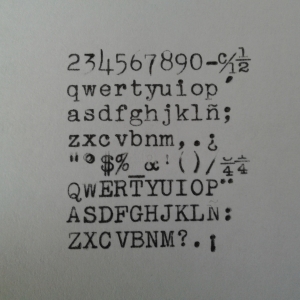 234567890-c/1½
qwertyuiop´
asdfghjklñ;
zxcvbnm,.¿
"º$%_&!()/¾¼
QWERTYUIOP¨
ASDFGHJKLÑ:
ZXCVBNM?.¡